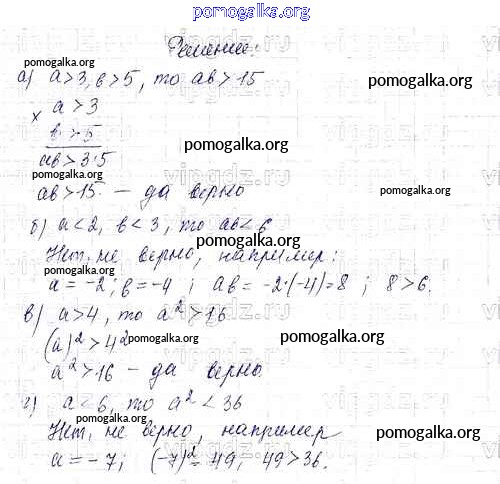 pomogalka.org
Решение:
pomogalka.org
а) a>3, b>5, то ab>15
pomogalka.org
× a>3
b>5
pomogalka.org
ab>3·5
ab>15 – да верно
pomogalka.org
б) a<2, b<3, то ab<6
pomogalka.org
Нет, не верно, например:
a=-2; b=-4; ab=-2·(-4)=8; 8>6.
pomogalka.org
в) a>4, то a²>16
(a)²>4²
pomogalka.org
pomogalka.org
a²>16 – да верно.
г) a<6, то a²<36
pomogalka.org
Нет, не верно, например
pomogalka.org
a=-7; (-7)²=49, 49>36.
pomogalka.org